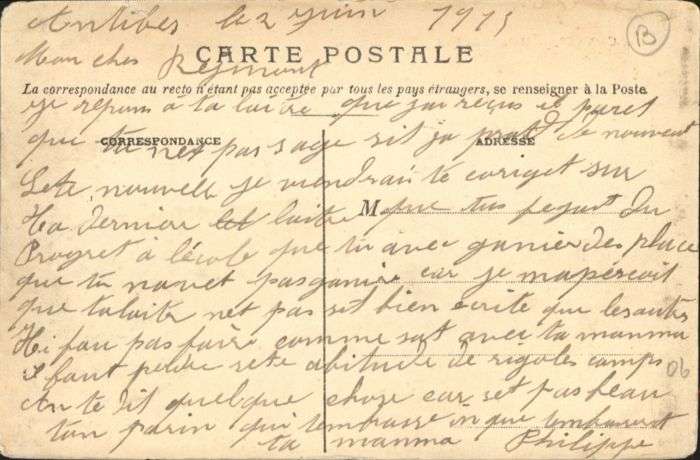 Antibes le 2 juin 1915
B
Mon cher Reymont
CARTE POSTALE
La correspondance au recto n'étant pas acceptée par tous les pays étrangers, se renseigner à la Poste
je repons à ta laitre que jai reçus il paret
CORRESPONDANCE
ADRESSE
que tu net pas sage sit ja prat de nouveut
sete nouvelle je viendrai te coriget sur
M
ta derniere laitre que tu du
Progret à lécole que tu avec ganier des place
que tu navet pas ganier car je mapercoit
que ta laite net pas sit bien ecrite que les autres
fau pas faire comme sat avec ta manma
il faut perdre sete abitude de rigoles camps
06
on te dit quelque chose car set pas beau
ton parin qui tembrasse in que
ta manma Philippe